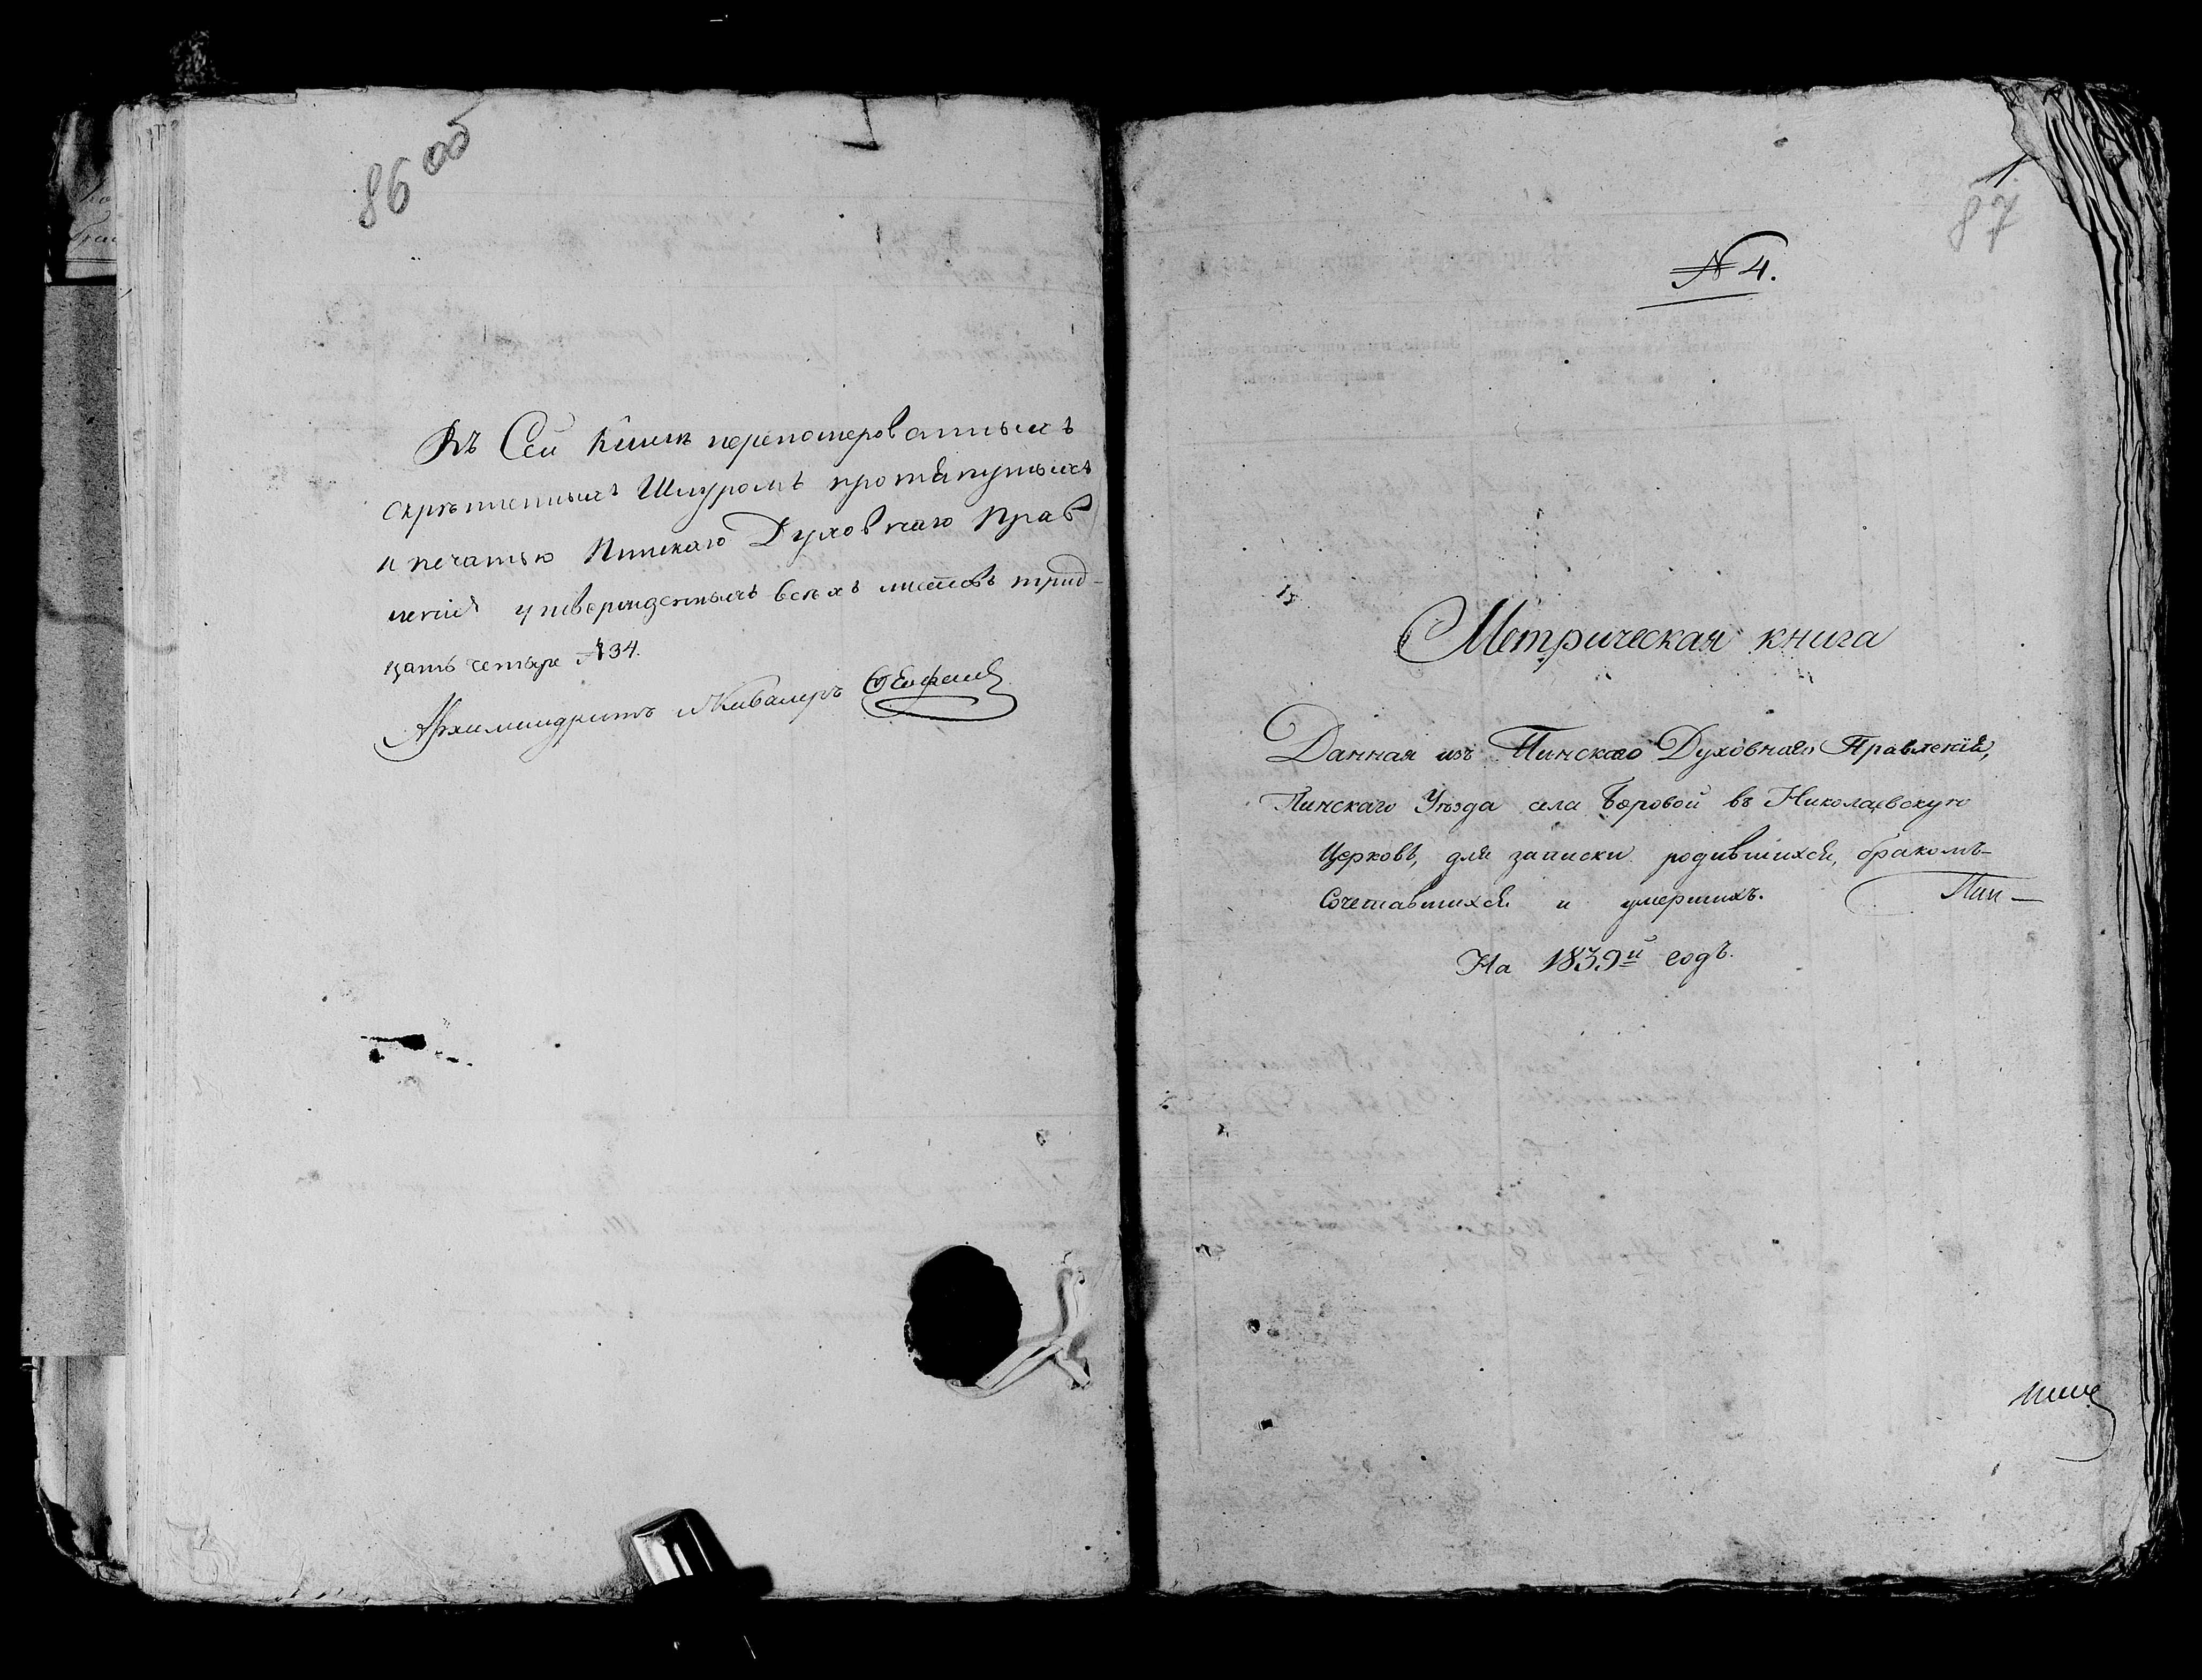 86 об
Въ Сей Книгѣ перенумерованныхъ
скрѣпленныхъ Шнуромъ протянутыхъ
и печатью Пинскаго Духовнаго Прав
ленія утвержденныхъ всѣхъ листовъ трид-
цать четыре №34.
Архимандритъ и Кавалеръ
1.
87
№ 4.
Метрическая книга
Данная изъ Пинскаго Духовнаго Правленія,
Пинскаго Уѣзда села Боровой въ Николаевскую
Церковь, для записки родившихся, бракомъ-
Сочетавшихся и умершихъ. Пин-
На 1839й годъ.